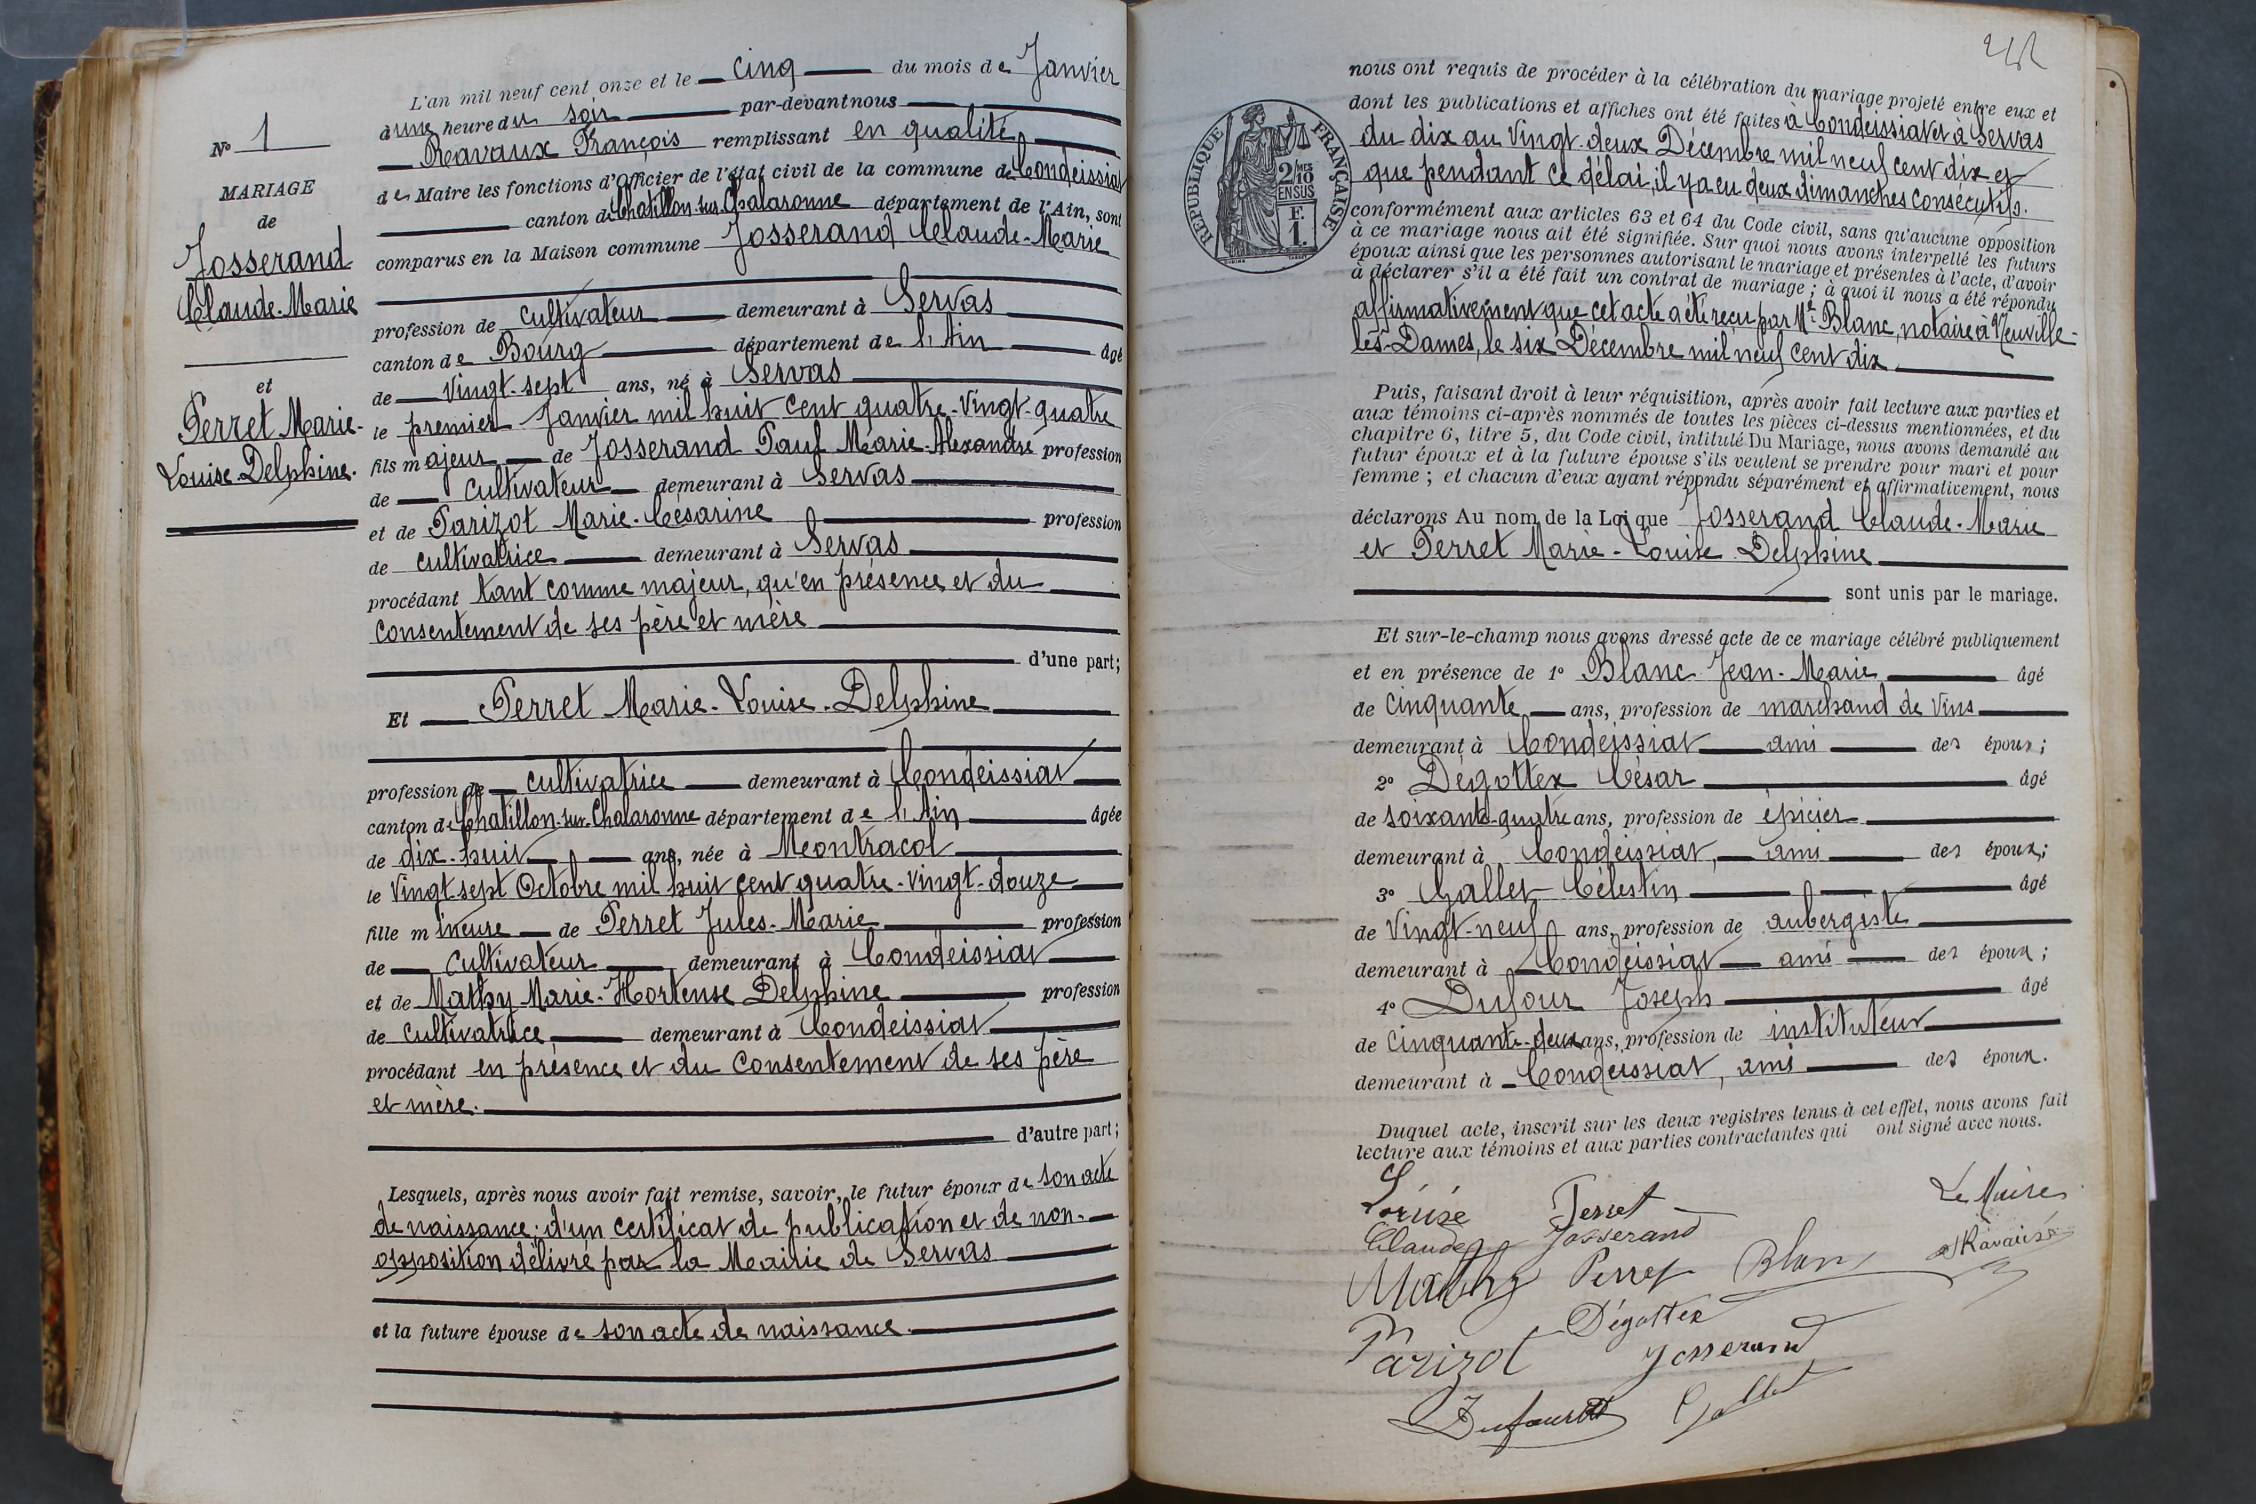 L'an mil neuf cent onze et le cinq du mois de Janvier
à une heure du soir par-devant nous
Ravaux François remplissant en qualité
de Maire les fonctions d'Officier de l'état civil de la commune de Condeissiat
canton de Chatillon-sur-Chalaronne département de l'Ain, sont
comparus en la Maison commune Josserand Claude-Marie
profession de cultivateur demeurant à Servas
canton de Bourg département de l'Ain âgé
de vingt-sept ans, né à Servas
le premier Janvier mil huit cent quatre-vingt-quatre
fils majeur de Josserand Paul Marie-Alexandre profession
de cultivateur demeurant à Servas
et de Parizot Marie-Césarine profession
de cultivatrice demeurant à Servas
procédant tant comme majeur, qu'en présence et du
consentement de ses père et mère
d'une part;
Et Perret Marie-Louise-Delphine
profession de cultivatrice demeurant à Condeissiat
canton de Chatillon-sur-Chalaronne département de l'Ain âgée
de dix-huit ans, née à Montracol
le vingt sept Octobre mil huit cent quatre-vingt-douze
fille mineure de Perret Jules-Marie profession
de cultivateur demeurant à Condeissiat
et de Mathy Marie-Hortense Delphine profession
de cultivatrice, demeurant à Condeissiat
procédant en présence et du consentement de ses père
et mère.
d'autre part;
Lesquels, après nous avoir fait remise, savoir, le futur époux de son acte
de naissance; d'un certificat de publication et de non-
opposition délivré par la Mairie de Servas
et la future épouse de son acte de naissance.
N° 1
MARIAGE
de
Josserand
Claude-Marie
et
Perret Marie-
Louise-Delphine.
nous ont requis de procéder à la célébration du mariage projeté entre eux et
dont les publications et affiches ont été faites à Condeissiat et à Servas
du dix au vingt-deux Décembre mil neuf cent dix et
que pendant ce délai, il y a eu deux dimanches consécutifs.
conformément aux articles 63 et 64 du Code civil, sans qu'aucune opposition
à ce mariage nous ait été signifiée. Sur quoi nous avons interpellé les futurs
époux ainsi que les personnes autorisant le mariage et présentes à l'acte, d'avoir
à déclarer s'il a été fait un contrat de mariage; à quoi il nous a été répondu
affirmativement que cet acte a été reçu par Me Blanc, notaire à Neuville-
les-Dames, le six Décembre mil neuf cent dix
Puis, faisant droit à leur réquisition, après avoir fait lecture aux parties et
aux témoins ci-après nommés de toutes les pièces ci-dessus mentionnées, et du
chapitre 6, titre 5, du Code civil, intitulé Du Mariage, nous avons demandé au
futur époux et à la future épouse s'ils veulent se prendre pour mari et pour
femme; et chacun d'eux ayant répondu séparément et affirmativement, nous
déclarons Au nom de la Loi que Josserand Claude-Marie
et Perret Marie-Louise Delphine
sont unis par le mariage.
Et sur-le-champ nous avons dressé acte de ce mariage célébré publiquement
et en présence de 1° Blanc Jean-Marie âgé
de cinquante ans, profession de marchand de vins
demeurant à Condeissiat ami des époux;
2° Dégottex César âgé
de soixante-quatre ans, profession de épicier
demeurant à Condeissiat, ami des époux;
3° Gallet Célestin âgé
de vingt-neuf ans, profession de aubergiste
demeurant à Condeissiat ami des époux;
4° Dufour Joseph âgé
de cinquante-deux ans, profession de instituteur
demeurant à Condeissiat, ami des époux.
Duquel acte, inscrit sur les deux registres tenus à cet effet, nous avons fait
lecture aux témoins et aux parties contractantes qui ont signé avec nous.
Louise Perret Le Maire
Claude Josserand Ravaux
Mathy Perret Blanc
Dégottex
Parizot Josserand
Dufour Gallet
RÉPUBLIQUE FRANÇAISE
2/10
EN SUS
F.
1.